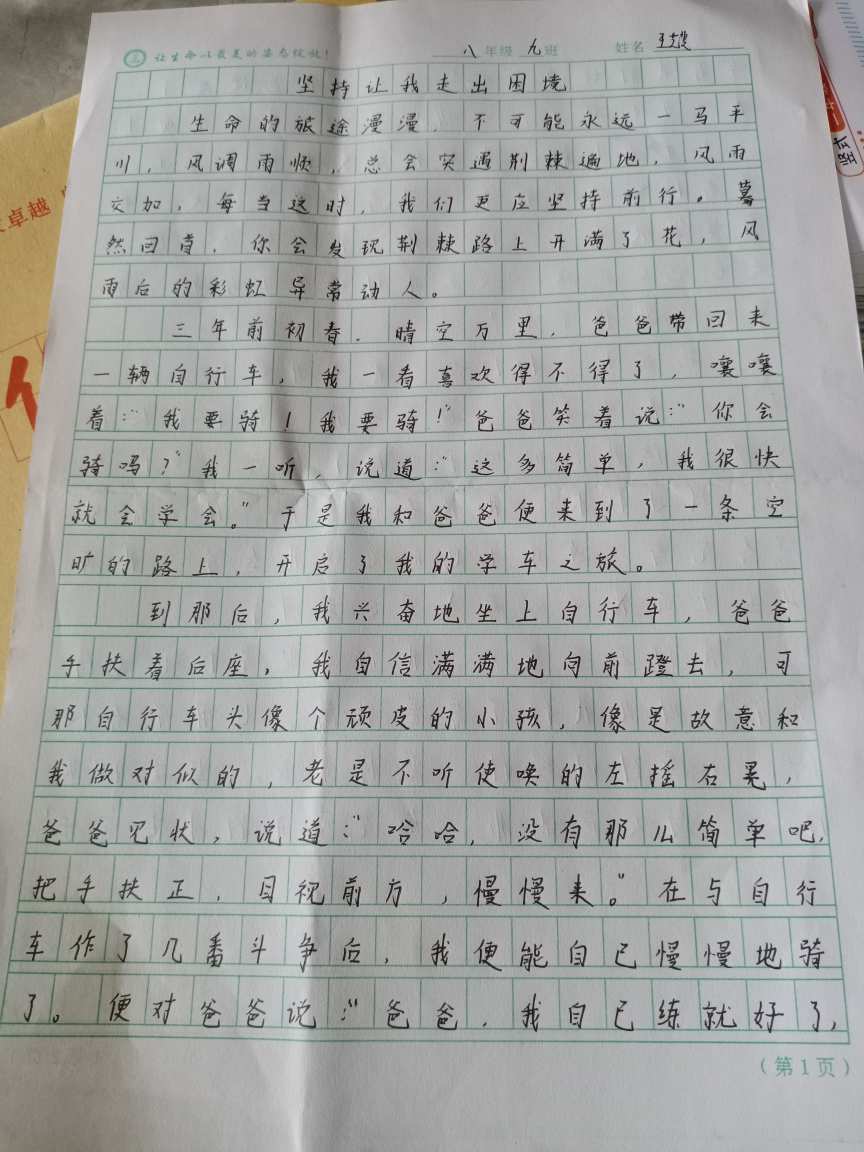 让生命以最美的姿态绽放！ 八年级九班 姓名
坚持让我走出困境
生命的旅途漫漫，不可能永远一马平
川，风调雨顺，总会突遇荆棘遍地，风雨
交加，每当这时，我们更应坚持前行。蓦
然回首，你会发现荆棘路上开满了花，风
雨后的彩虹异常动人。
三年前初春，晴空万里，爸爸带回来
一辆自行车，我一看喜欢得不得了，嚷嚷
着：“我要骑！我要骑！”爸爸笑着说：“你会
骑吗？”我一听，说道：“这多简单，我很快
就会学会。”于是我和爸爸便来到了一条空
旷的路上，开启了我的学车之旅。
到那后，我兴奋地坐上自行车，爸爸
手扶着后座，我自信满满地向前蹬去，可
那自行车头像个顽皮的小孩，像是故意和
我做对似的，老是不听使唤的左摇右晃，
爸爸见状，说道：“哈哈，没有那么简单吧，
把手扶正，目视前方，慢慢来。”在与自行
车作了几番斗争后，我便能自己慢慢地骑
了。便对爸爸说：“爸爸，我自己练就好了，
（第1页）
卓越
竖式